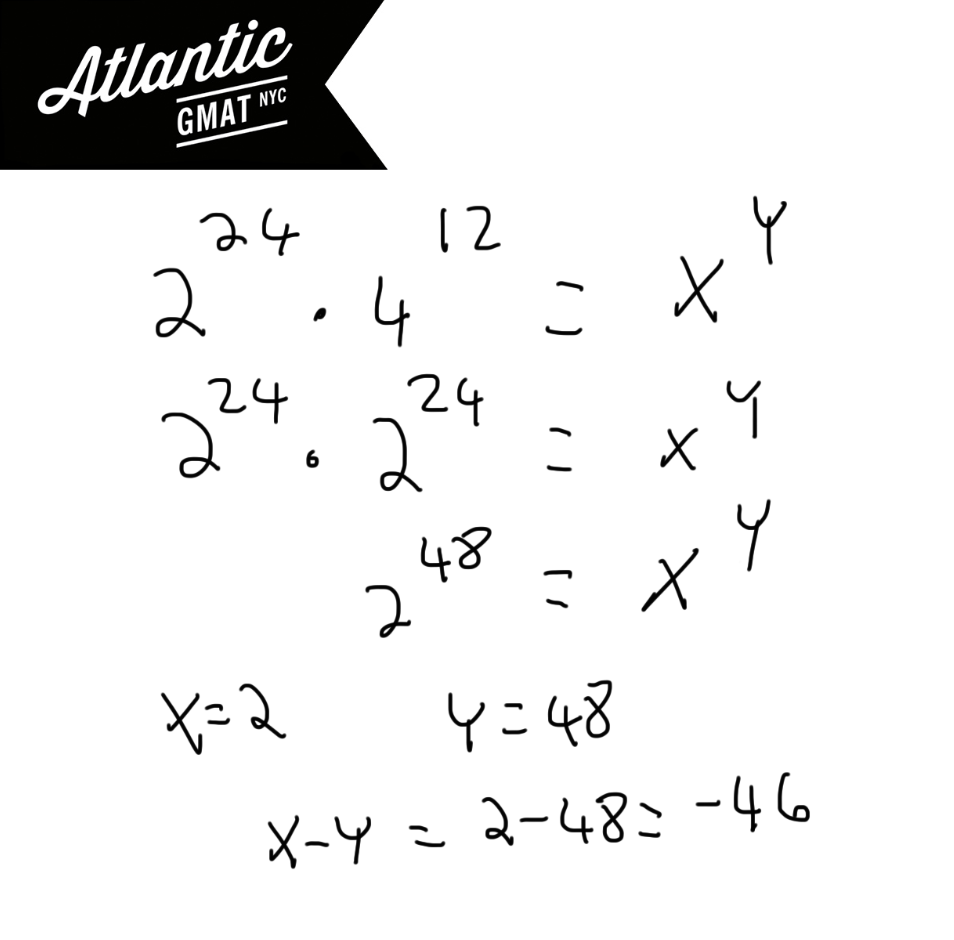 Atlantic
GMAT NYC
2^24 · 4^12 = x^y
2^24 · 2^24 = x^y
2^48 = x^y
x=2 y=48
x-y = 2-48= -46